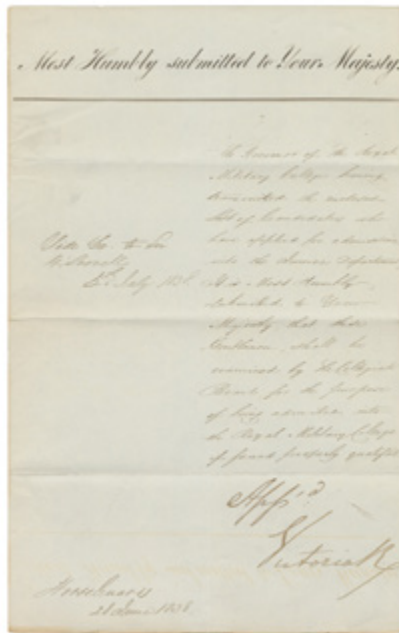 Most Humbly submitted to Your Majesty.
The Governor of the Royal
Military College having
transmitted the enclosed
List of Candidates who
have applied for admission
into the Junior Department
It is Most Humbly
submitted to Your
Majesty that these
Gentlemen shall be
examined by the Collegiate
Board for the purpose
of being admitted into
the Royal Military College
if found properly qualified
to Sir
July 1838.
App'd
Victoria R
Horse Guards
28 June 1838.